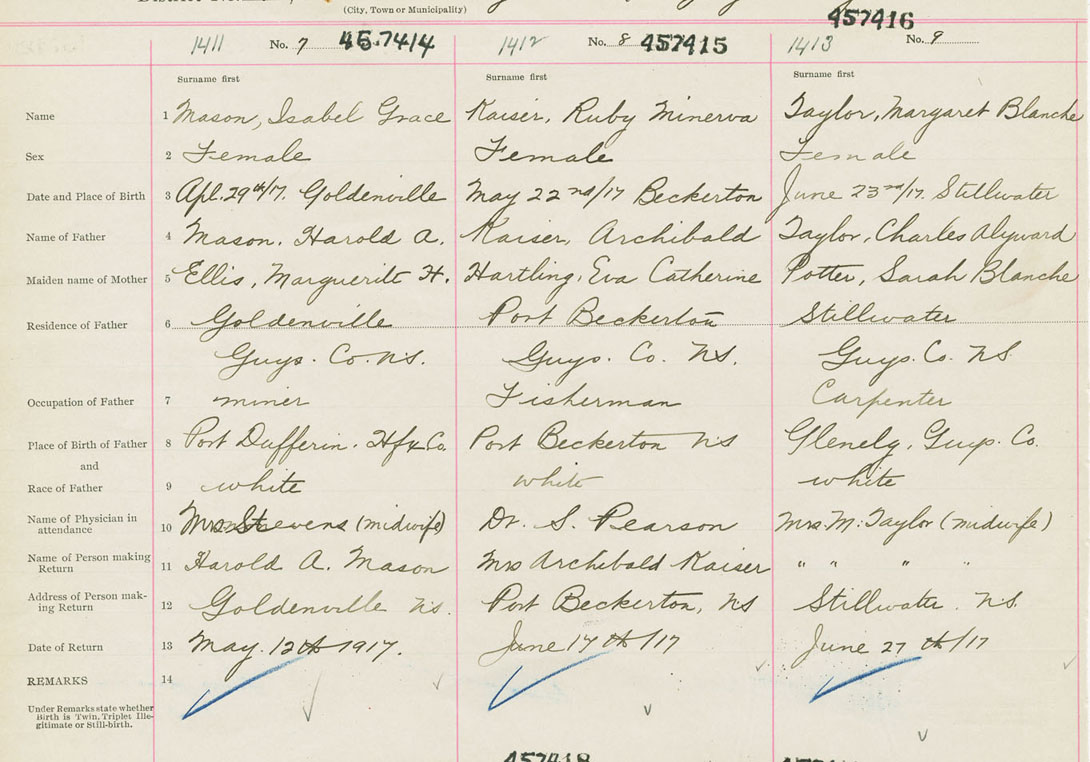 (City, Town or Municipality)
1411 No. 7 457414 1412 No. 8 457415 1413 457416 No. 9
Surname first Surname first Surname first
Name 1 Mason, Isabel Grace Kaiser, Ruby Minerva Taylor, Margaret Blanche
Sex 2 Female Female Female
Date and Place of Birth 3 Apl. 29th/17. Goldenville May 22nd/17 Beckerton June 23rd/17. Stillwater
Name of Father 4 Mason, Harold A. Kaiser, Archibald Taylor, Charles Alyward
Maiden name of Mother 5 Ellis, Marguerite H. Hartling, Eva Catherine Potter, Sarah Blanche
Residence of Father 6 Goldenville Port Beckerton Stillwater
Guys. Co. N.S. Guys. Co. N.S. Guys. Co. N.S.
Occupation of Father 7 miner Fisherman Carpenter
Place of Birth of Father 8 Port Dufferin. Hfx Co. Port Beckerton NS Glenelg, Guys. Co.
and
Race of Father 9 white white white
Name of Physician in attendance 10 Mrs. Stevens (midwife) Dr. S. Pearson Mrs. M. Taylor (midwife)
Name of Person making Return 11 Harold A. Mason Mrs Archibald Kaiser " " " "
Address of Person mak-ing Return 12 Goldenville N.S. Port Beckerton, NS Stillwater. N.S.
Date of Return 13 May. 12th 1917. June 17th/17 June 27th/17
REMARKS 14
Under Remarks state whether
Birth is Twin, Triplet Ille-
gitimate or Still-birth.